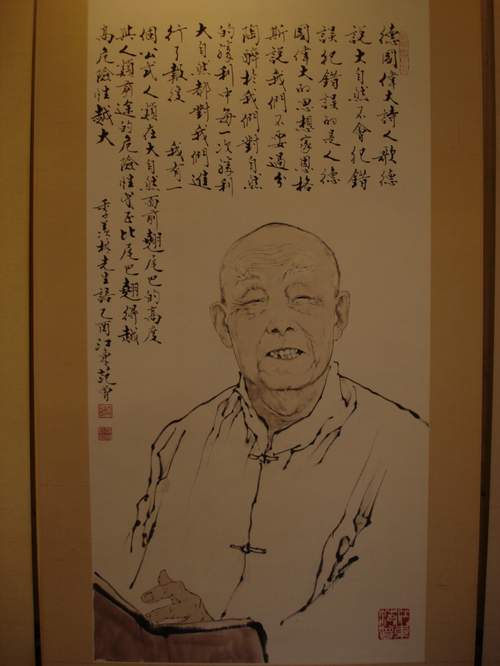 德國偉大詩人歌德
說大自然不會犯錯
誤犯錯誤的是人德
國偉大的思想家恩格
斯說我們不要過分
陶醉於我們對自然
的勝利中每一次勝利
大自然都對我們進
行了報復 我有一
個公式人類在大自然面前翹尾巴的高度
與人類前途的危險性成正比尾巴翹得越
高危險性越大
季羨林先生語乙酉江東范曾